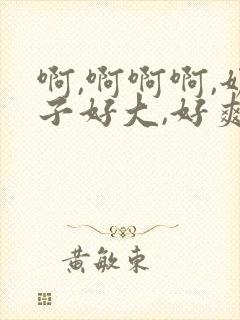 啊,啊啊啊,
子好大,好爽
黄敏东